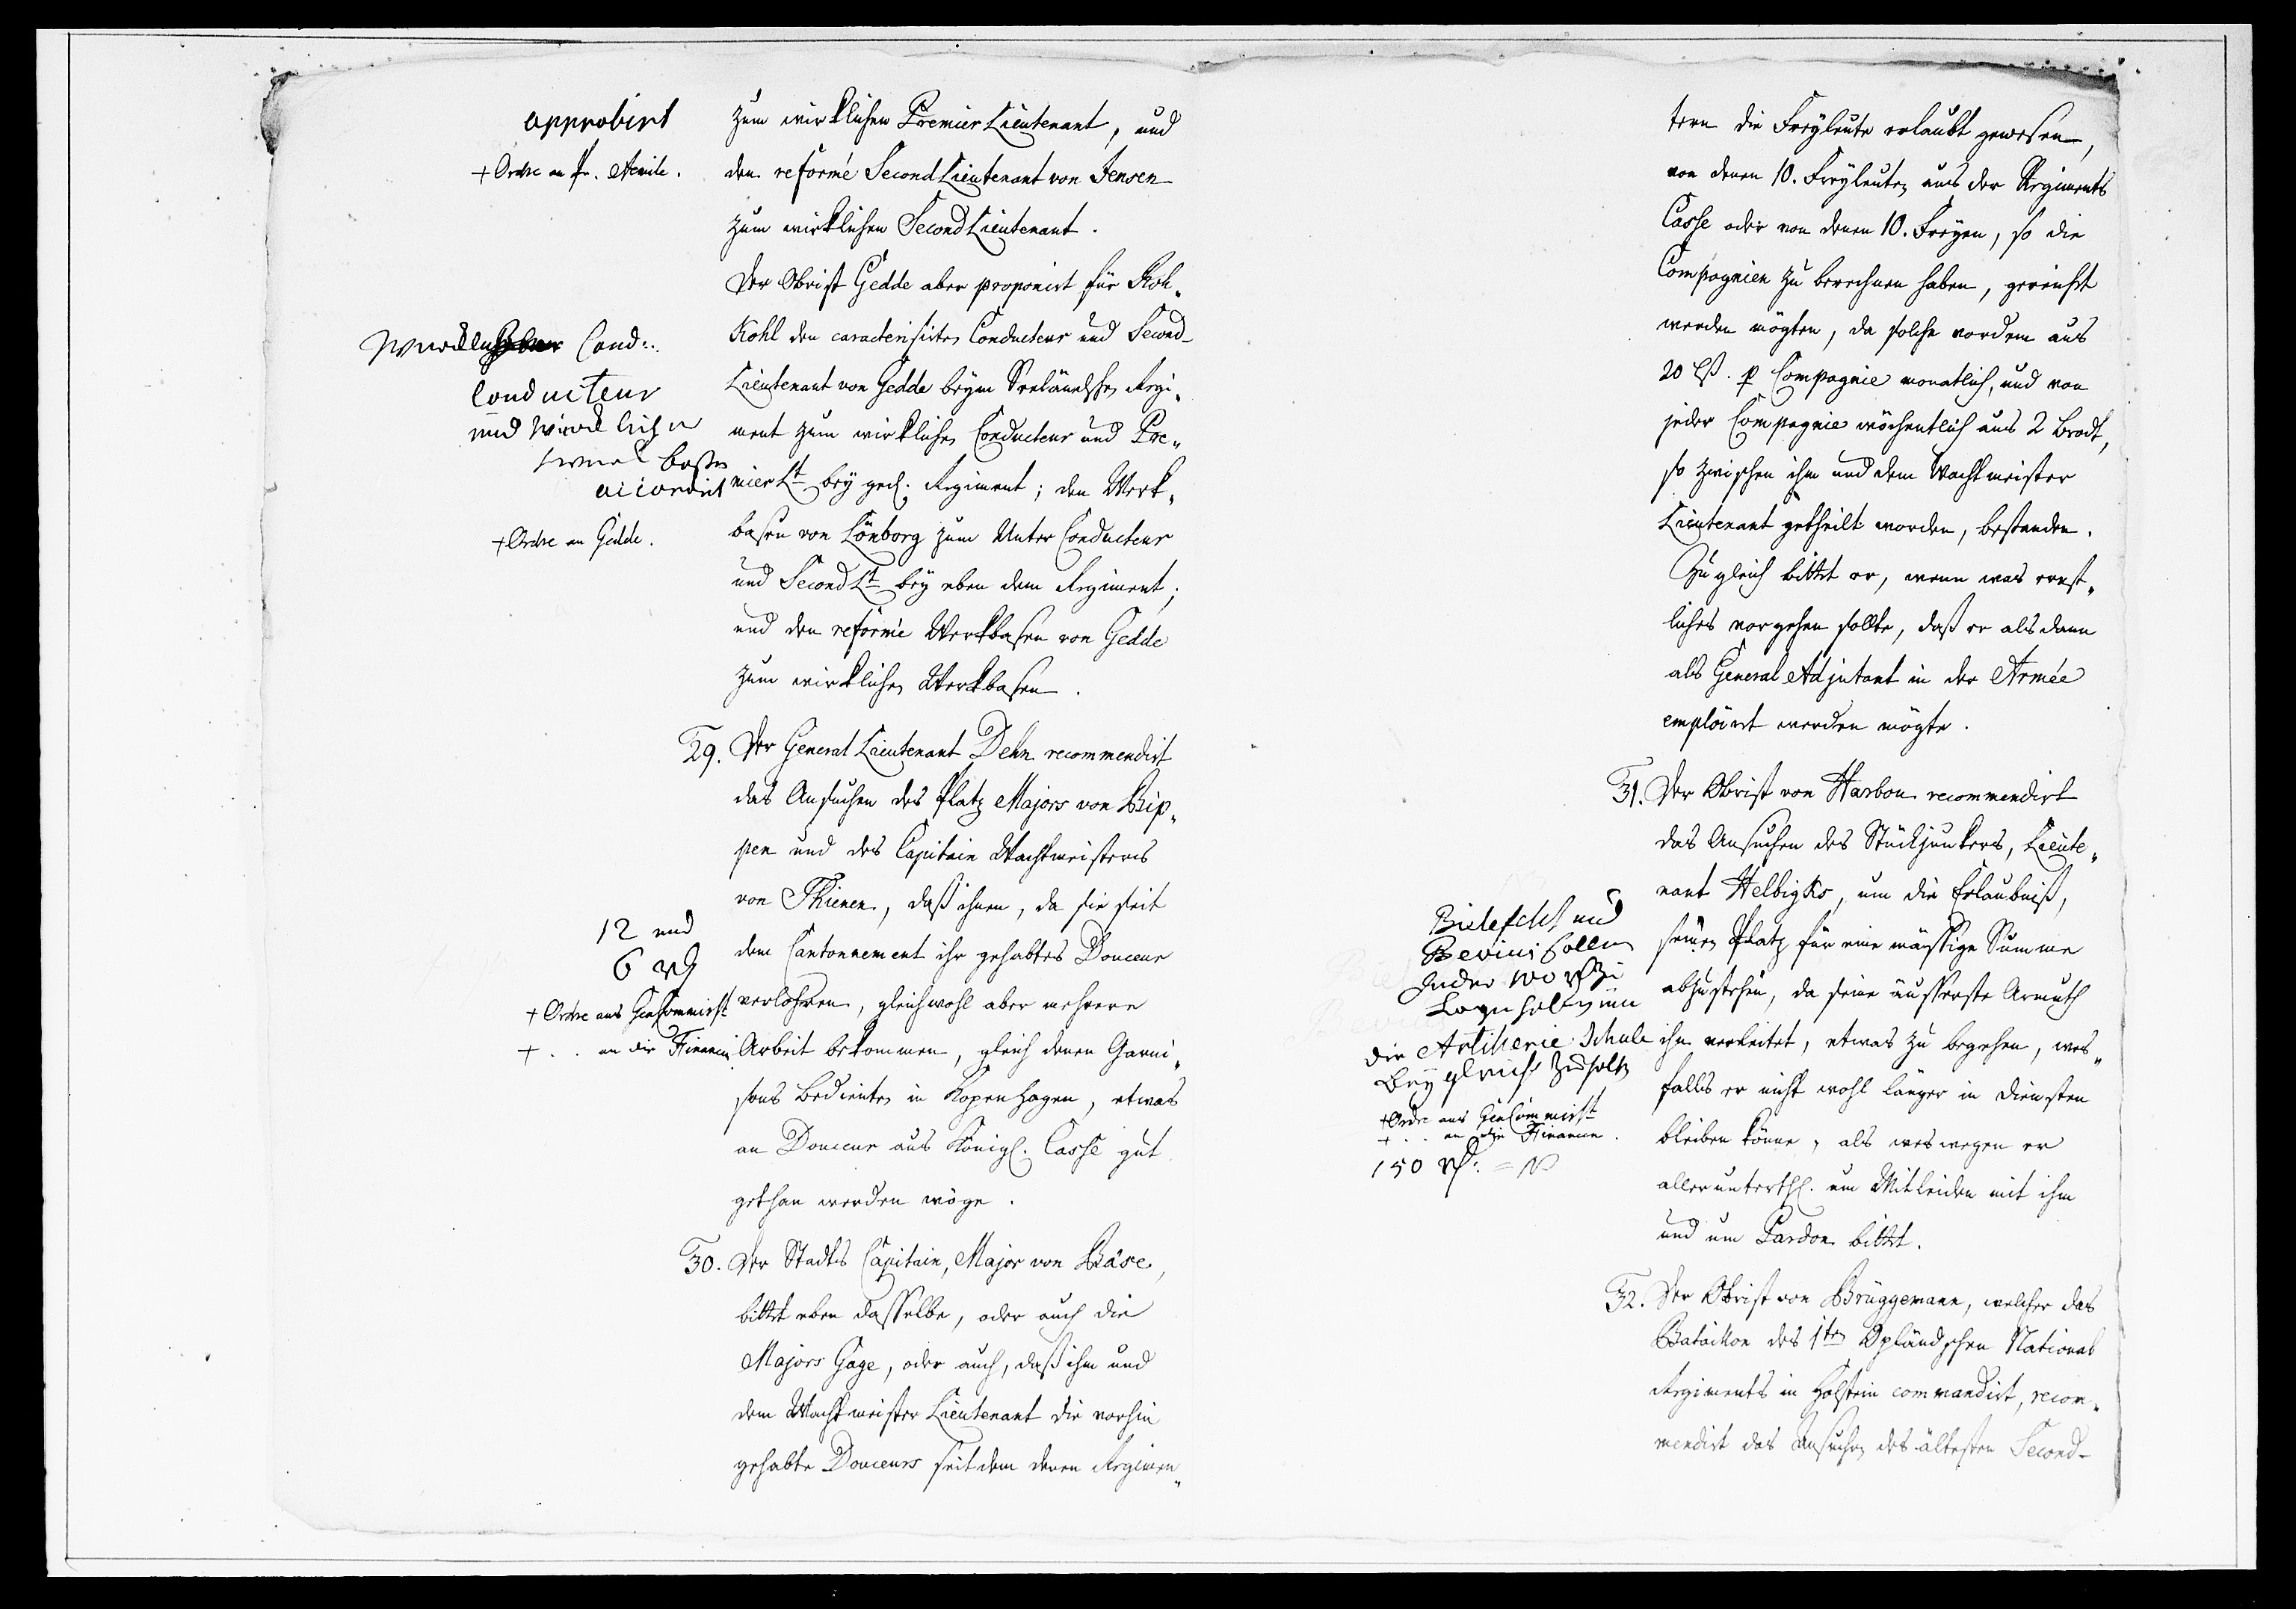 approbirt
+ Ordre an Pr. Aemile.
zum wirklichen Premier Lieutenant, und
den reformé Second Lieutenant von Jensen
zum wirklichen Second Lieutenant.
Der Obrist Gedde aber proponirt für Koh„
Kohl den caracterisirten Conducteur und Second-
Lieutenant von Gedde beym Seeländschen Regi„
ment zum wirklichen Conducteur und Pre„
mier Lt. bey ged. Regiment; den Werk„
basen von Lönborg zum Unter Conducteur
und Second Lt. bey eben dem Regiment;
und den reformé Werkbasen von Gedde
zum wirklichen Werkbasen.
Cond:
Conducteur
und wircklichen
basen
accordirt
+ Ordre an Gedde.
29. Der General Lieutenant Dehn recommendirt
das Ansuchen des Platz Majors von Bip„
pen und des Capitain Wachtmeisters
von Thienen, daß ihnen, da sie seit
dem Cantonnement ihr gehabtes Douceur
verlohren, gleichwohl aber mehrere
Arbeit bekommen, gleich denen Garni„
sons Bedienten in Kopenhagen, etwas
an Douceur aus Königl. Casse gut
gethan werden möge.
12 und
6 rd
+ Ordre ans GenCommisst.
+ . . an die Financen
30. Der Stadts Capitain, Major von Båse,
bittet eben dasselbe, oder auch die
Majors Gage, oder auch, daß ihm und
dem Wachtmeister Lieutenant die vorhin
gehabte Douceurs seitdem denen Regimen„
tern die Freyleute erlaubt gewesen,
von denen 10. Freyleuten aus der Regiments
Casse oder von denen 10. Freyen, so die
Compagnien zu berechnen haben, gereicht
werden mögten, da solche vordem aus
20 lß. p Compagnie monatlich, und von
jeder Compagnie wöchentlich aus 2 Brodt,
so zwischen ihm und dem Wachtmeister
Lieutenant getheilt worden, bestanden.
Zugleich bittet er, wenn was ernst„
liches vorgehen sollte, daß er alsdann
als General Adjutant in der Armée
emploirt werden mögte.
31. Der Obrist von Harbou recommendirt
das Ansuchen des Stückjunkers, Lieute„
nant Helbigks, um die Erlaubniß,
seinen Platz für eine mässige Summe
abzustehen, da seine äusserste Armuth
ihn verleitet, etwas zu begehen, wes„
falls er nicht wohl länger in Diensten
bleiben könne, als weswegen er
allerunterth. um Mitleiden mit ihm
und um Pardon bittet.
Bielefeldt und
sollen
die Artillerie Schule
+ Ordre ans GenCommisst.
+ . . an die Financen.
150 rd:
32. Der Obrist von Brüggemann, welcher das
Bataillon des 1ten Opländschen National
Regiments in Holstein commandirt, recom„
mendirt das Ansuchen des ältesten Second-